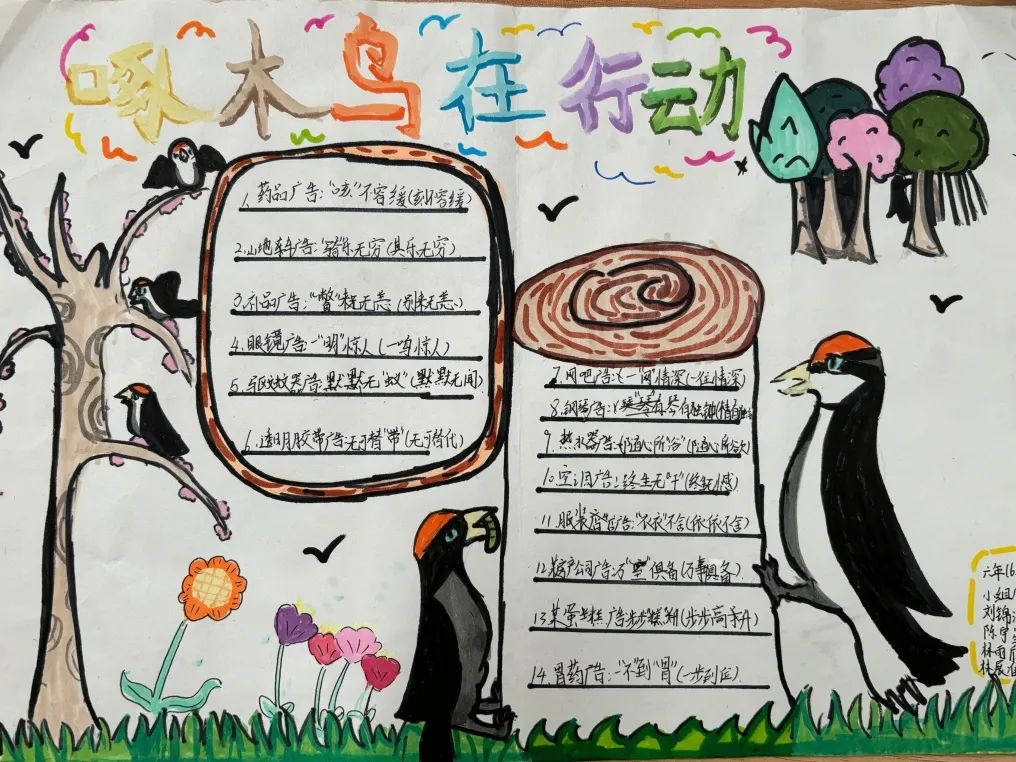 啄木鸟在行动
1、药品广告:"咳"不容缓(刻不容缓)
2、山地车广告:"骑"乐无穷(其乐无穷)
3、礼品广告:"瞥"来无恙(别来无恙)
4、眼镜广告:一"明"惊人(一鸣惊人)
5、驱蚊器广告:默默无"蚊"(默默无闻)
6、透明胶带广告:无可替"带"(无可替代)
7、网吧广告:一"网"情深(一往情深)
8、钢琴广告:
9、热水器广告:随心所"浴"(随心所欲)
10、空调广告:终生无"汗"(终身无憾)
11、服装店广告:"衣衣"不舍(依依不舍)
12、房产公司广告:万"室"俱备(万事俱备)
13、某蛋糕广告:步步"糕"升(步步高升)
14、胃药广告:一"不"到"胃"(一步到位)
六年(6
小组
刘锦
陈宇
林雨
林展